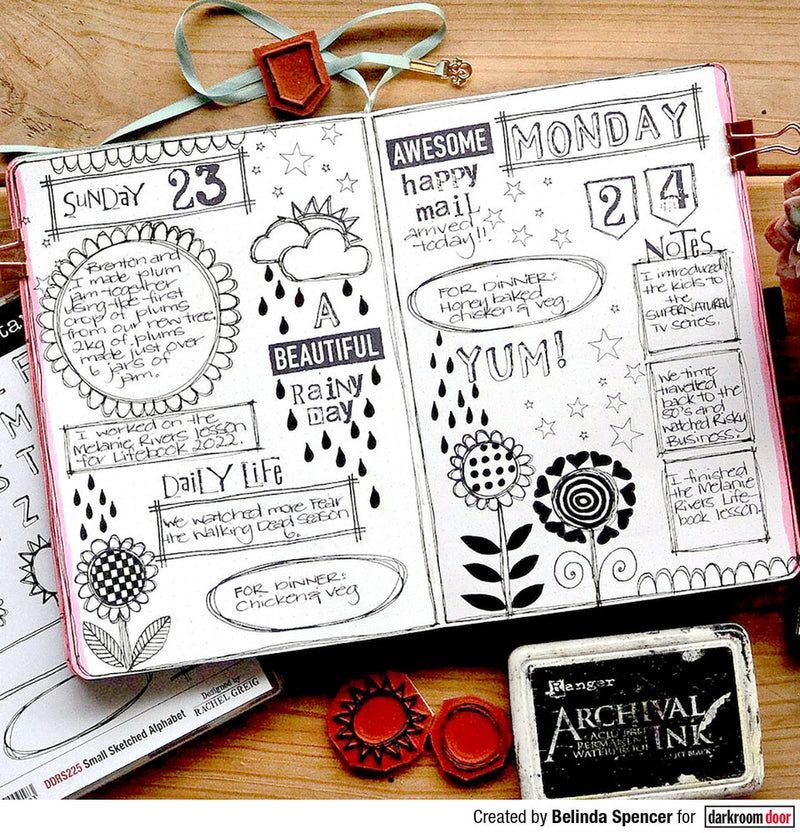 SUNDAY 23
Brenton and
I made plum
jam together
using the first
crop of plums
from our new tree.
2kg of plums
made just over
6 jars of
jam.
I worked on the
Melanie Rivers lesson
for Lifebook 2022.
DAILY LIFE
We watched more Fear
the Walking Dead season
6.
FOR DINNER:
chicken & veg
A
BEAUTIFUL
RAiNy
DAY
AWESOME
happy
mail
arrived
today!!
MONDAY
24
FOR DINNER:
Honey baked
chicken & veg.
YUM!
NOTES
I introduced
the kids to
the
SUPERNATURAL
TV series.
We time
travelled
back to the
80's and
watched Risky
Business.
I finished
the Melanie
Rivers Life-
book lesson.
Designed by
RACHEL GREIG
DDRS225 Small Sketched Alphabet
Ranger
ARCHIVAL
INK
ACID FREE
PERMANENT
WATERPROOF
JET BLACK
Created by Belinda Spencer for darkroom door